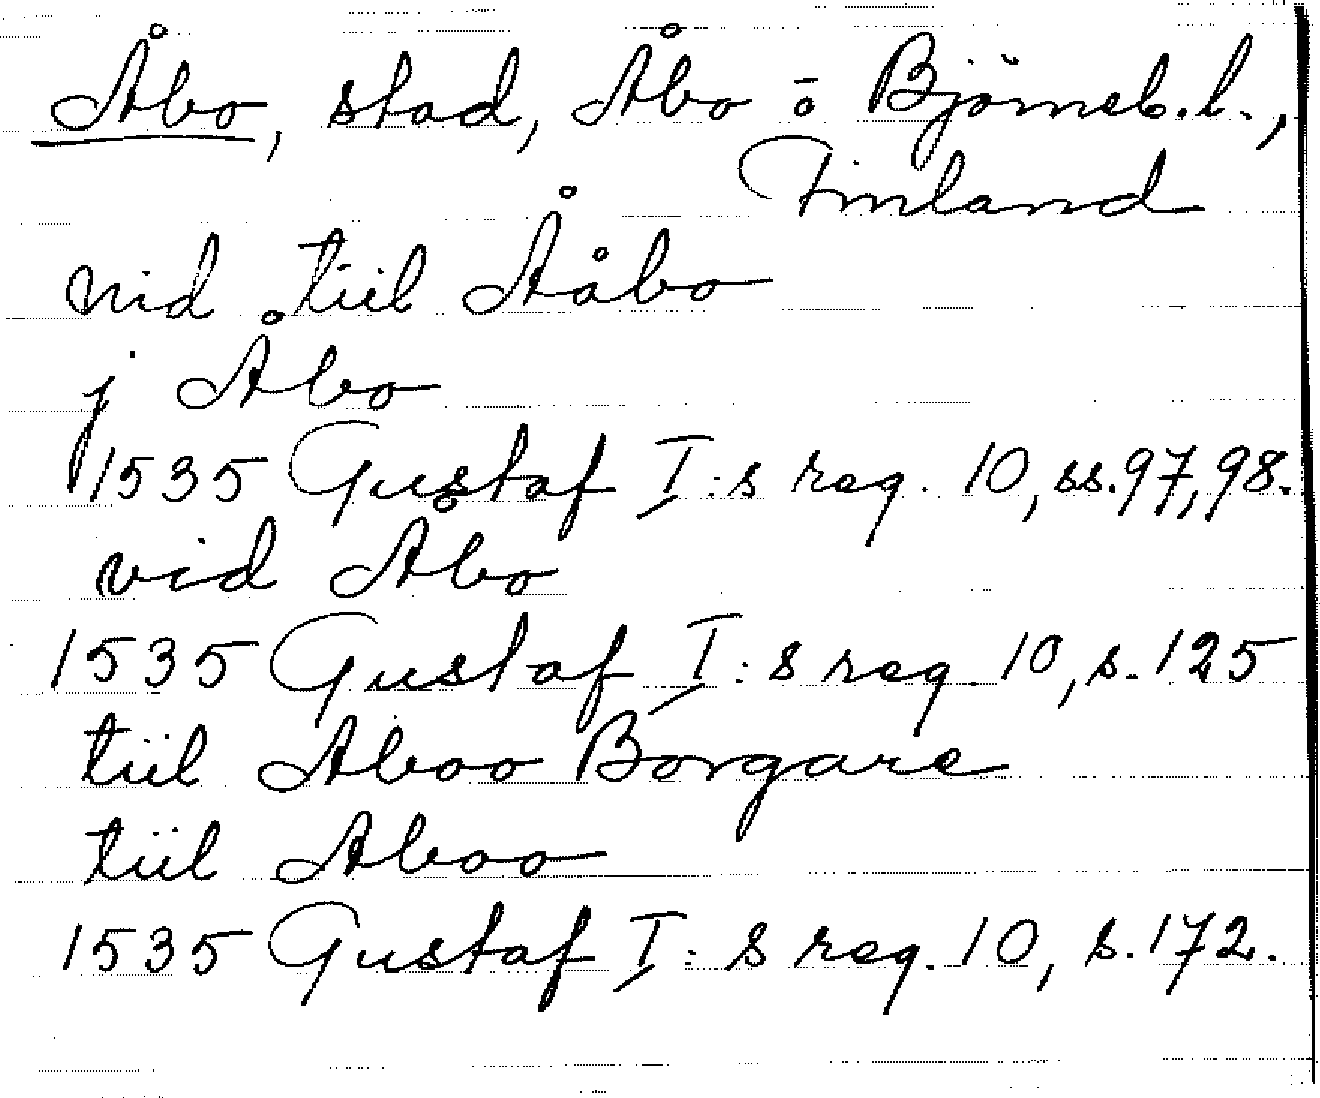 Åbo, stad, Åbo o Björneb. l.,
Finland
nid tiil Ååbo
j Åbo
1535 Gustaf I:s reg. 10, ss. 97, 98.
vid Åbo
1535 Gustaf I:s reg. 10, s. 125
tiil Aboo Borgare
tiil Aboo
1535 Gustaf I:s reg. 10, s. 172.